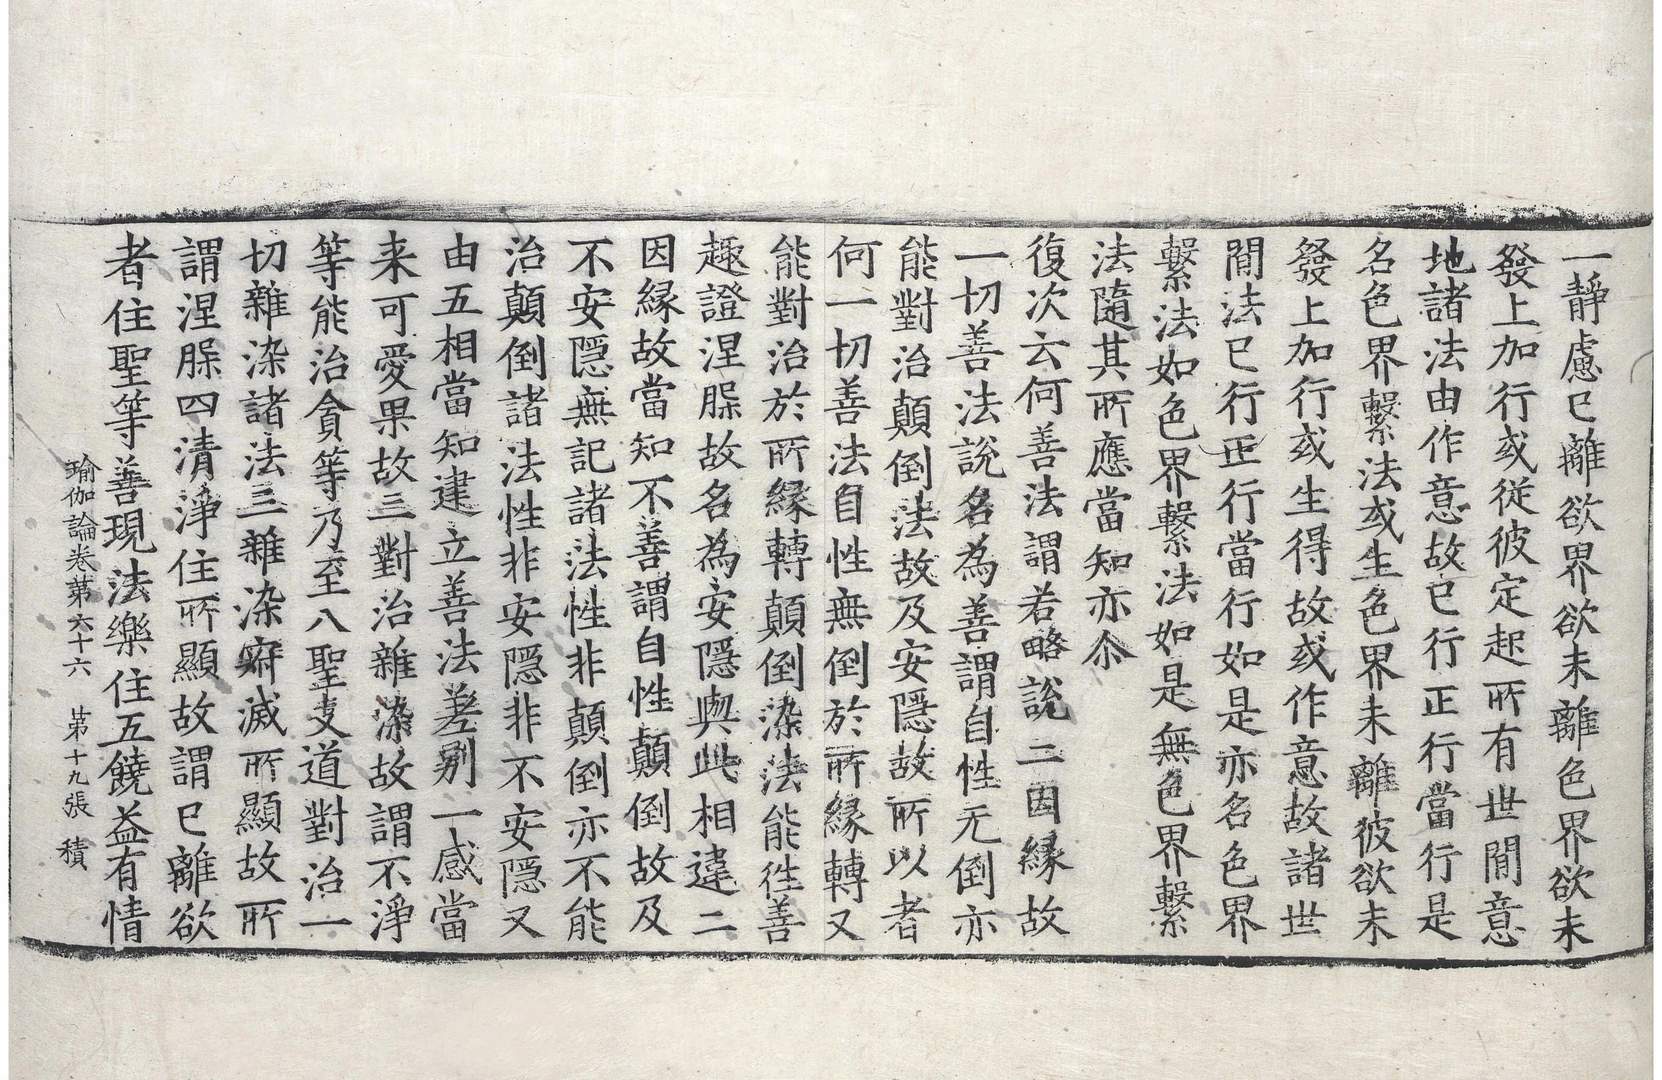 一静慮已離欲界欲未離色界欲未
發上加行或從彼定起所有世間意
地諸法由作意故已行正行當行是
名色界繫法或生色界未離彼欲未
發上加行或生得故或作意故諸世
間法已行正行當行如是亦名色界
繫法如色界繫法如是無色界繫
法隨其所應當知亦尒
復次云何善法謂若略說二因縁故
一切善法說名為善謂自性无倒亦
能對治顛倒法故及安隱故所以者
何一切善法自性無倒於所縁轉又
能對治於所縁轉顛倒染法能往善
趣證涅槃故名為安隱與此相違二
因縁故當知不善謂自性顛倒故及
不安隱無記諸法性非顛倒亦不能
治顛倒諸法性非安隱非不安隱又
由五相當知建立善法差別一感當
来可愛果故三對治雜染故謂不淨
等能治貪等乃至八聖支道對治一
切雜染諸法三雜染寂滅所顯故所
謂涅槃四清淨住所顯故謂已離欲
者住聖等善現法樂住五饒益有情
瑜伽論卷苐六十六 苐十九張 積